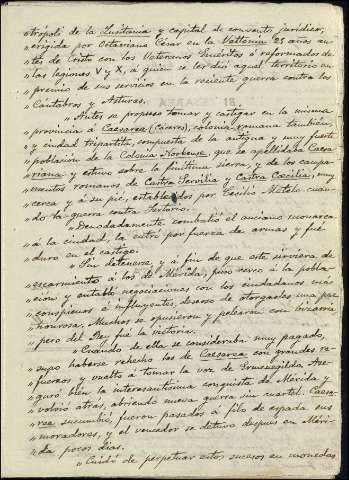 "trópoli de la Lusitania y capital de convento jurídico;
"erigida por Octaviano César en la Vettonia 25 años an-
"tes de Cristo con los Veteranos Eméritos ó reformados de
"las legiones V y X, á quien se les dió aquel territorio en
"premio de sus servicios en la reciente guerra contra los
"Cántabros y Astures.
"Antes se propuso tomar y castigar en la misma
"provincia á Caesarea (Cáceres), colonia romana también,
"y ciudad tripartita, compuesta de la antigua y muy fuerte
"población de la Colonia Norbense, que se apellidaba Caesa-
"riana y estuvo sobre la finítima sierra, y de los campa-
"mentos romanos de Castra Servilia y Castra Caecilia, muy
"cerca y á su pié, establecidos por Cecilio Metelo cuan-
"do la guerra contra Sertorio.
"Denodadamente combatió el anciano monarca
"á la ciudad, la entró por fuerza de armas y fué
"duro en el castigo.
"Sin detenerse y á fin de que esto sirviera de
"escarmiento á los de Mérida, puso cerco á la pobla-
"ción y entabló negociaciones con los ciudadanos más
"conspicuos é influyentes, deseoso de otorgarles una paz
"honrosa. Muchos se opusieron y pelearon con bizarría
"pero del Rey fué la victoria.
"Cuando de ella se consideraba muy pagado,
"supo haberse rebecho los de Caesarea con grandes re-
"fuerzos y vuelto á tomar la voz de Ermenegildo. Ase-
"guró bien la interesantísima conquista de Mérida y
"volvió atras, abriendo nueva guerra sin cuartel. Caesa-
"rea sucumbió, fueron pasados á filo de espada sus
"moradores, y el vencedor se detuvo despues en Méri-
"da pocos dias.
"Cuidó de perpetuar estos sucesos en monedas